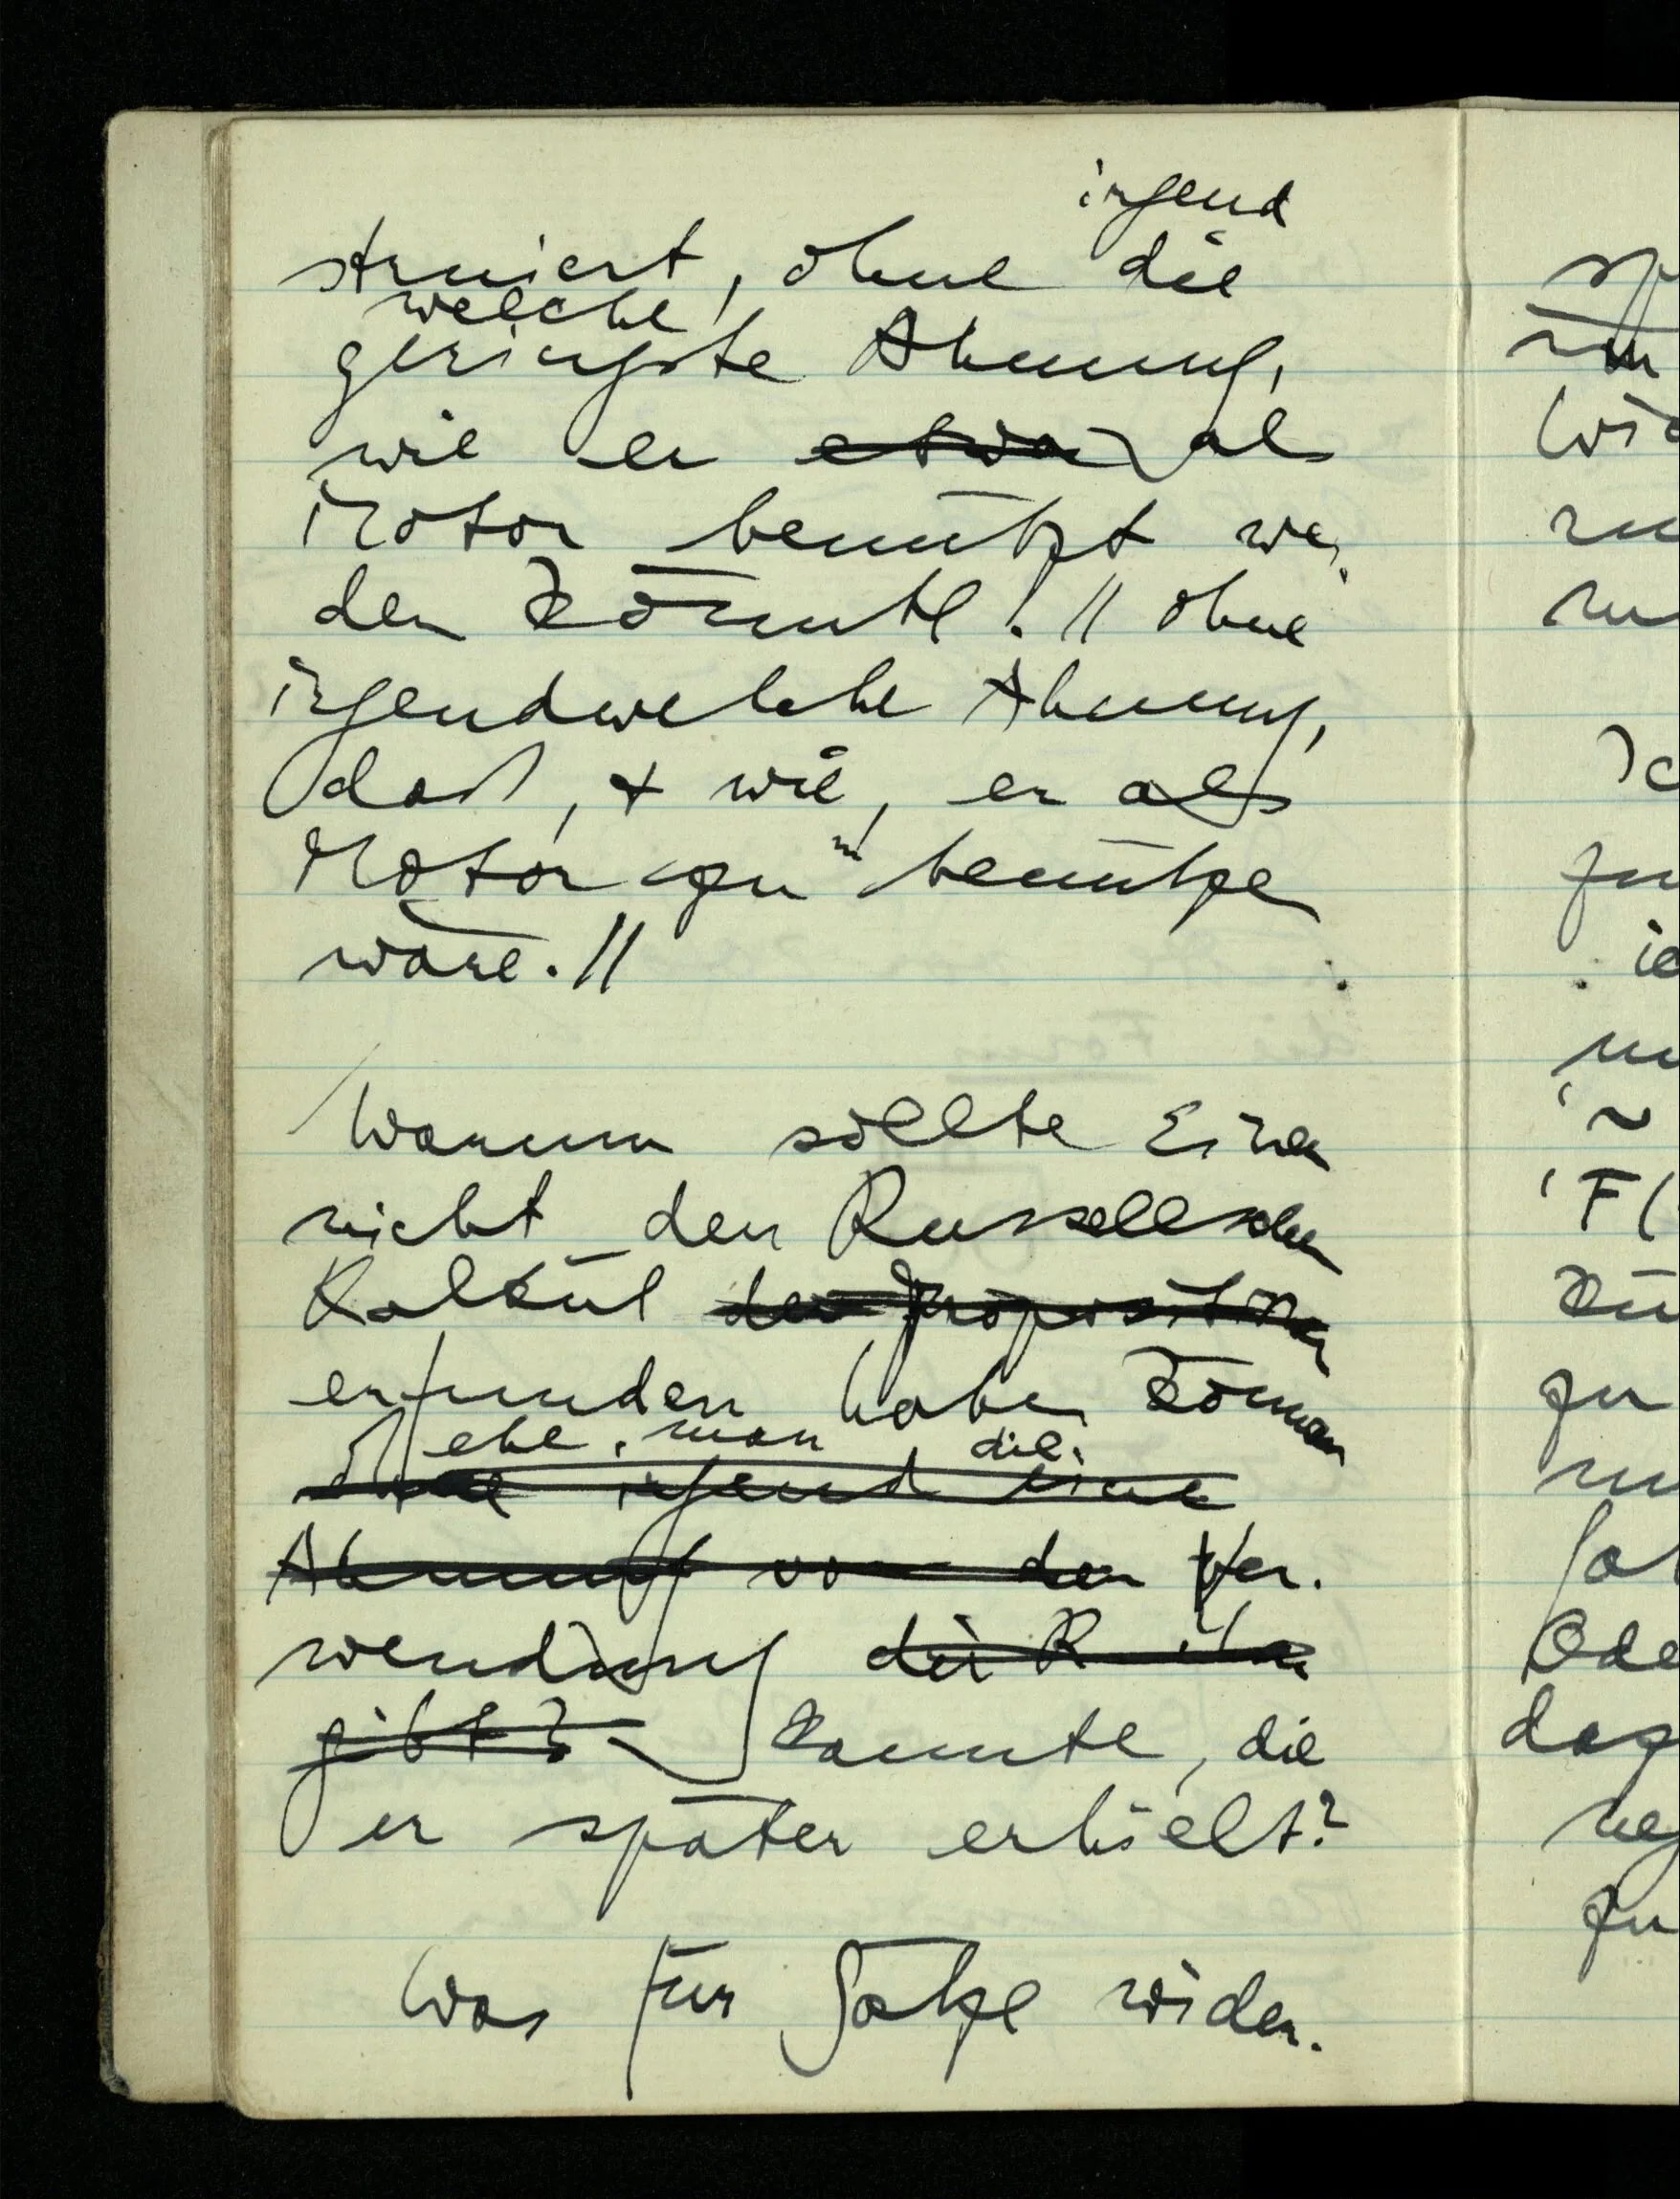 irgend
struiert, ohne die
welche
geringste Ahnung,
wie er etwa als
Motor benützt wer-
den könnte! // ohne
irgendwelche Ahnung,
daß, & wie, er als
Motor zu benützen
wäre. //
Warum sollte Einer
nicht den Russellschen
Kalkül der Propositionen
erfunden haben können
ehe man die
ohne irgend eine
Ahnung von der Ver-
wendung die R ihm
gibt? kannte, die
er später erhielt?
Was für Sätze wider-
Ode
F(